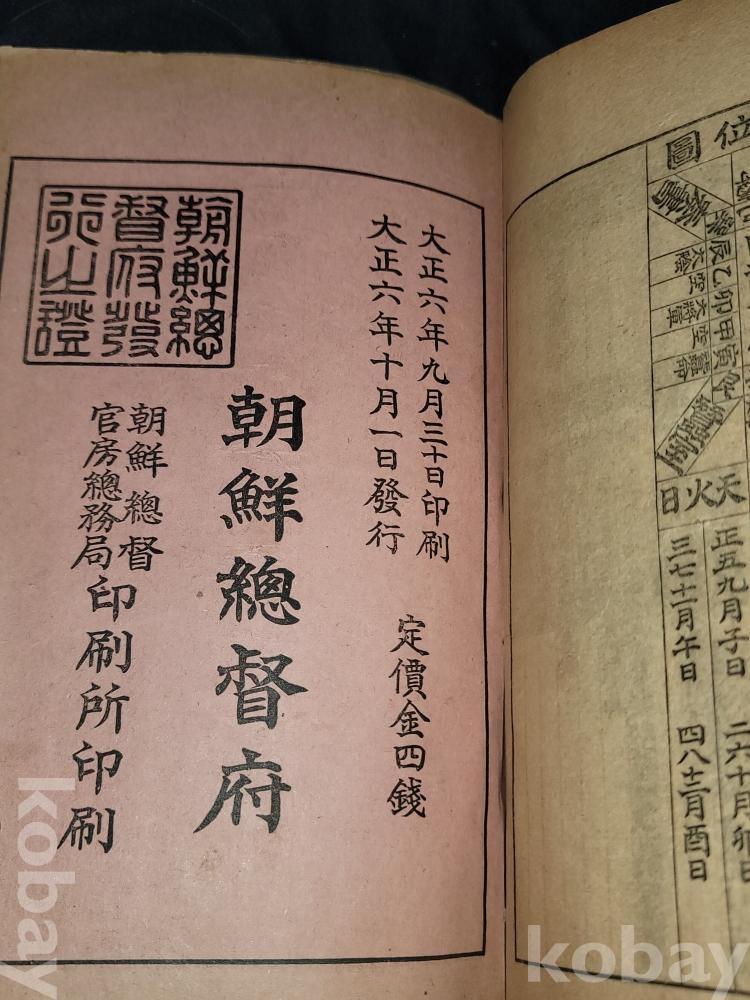 大正六年九月三十日印刷
大正六年十月一日發行
定價金四錢
朝鮮總督府
朝鮮總督
官房總務局印刷所印刷
朝鮮總
督府發
行之證
位
圖
辰乙卯甲寅
太陰
空
大將軍
空
蠶命
天火日
正五九月子日
二六十月卯日
三七十一月午日
四八十二月酉日
kobay
kobay